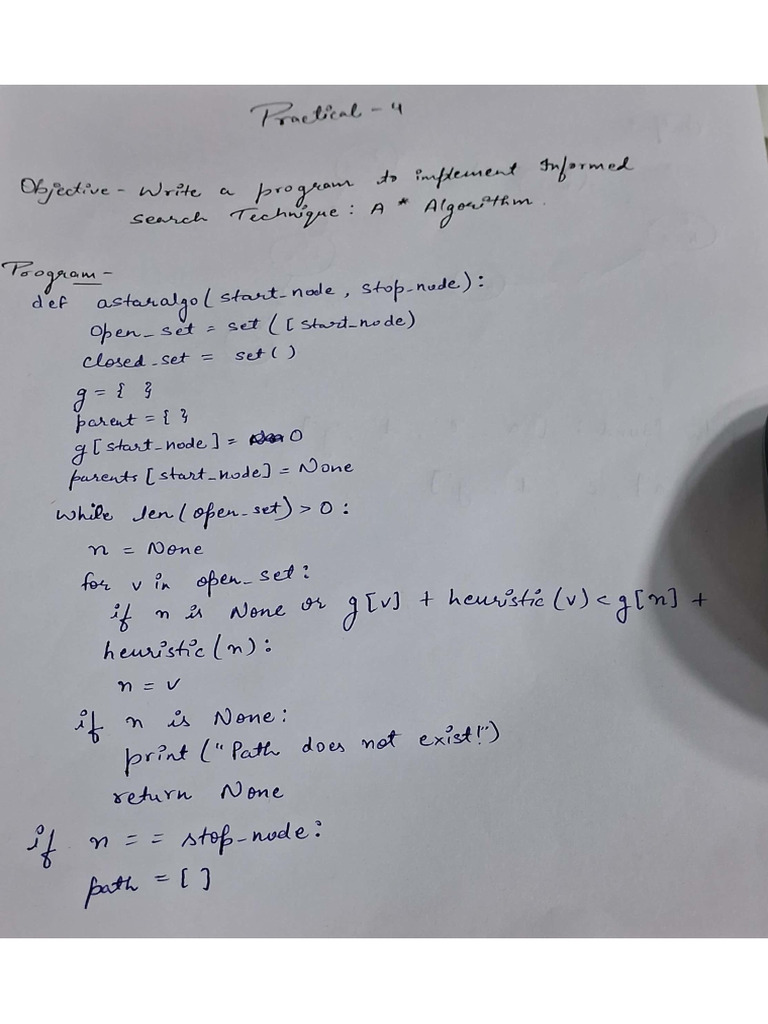 Practical - 4
Objective - Write a program to implement Informed
search Technique: A * Algorithm.
Program -
def astaralgo(start_node, stop_node):
open_set = set([start_node)
closed_set = set()
g = { }
parent = { }
g[start_node] = 0
parents[start_node] = None
while len(open_set) > 0:
n = None
for v in open_set:
if n is None or g[v] + heuristic(v) < g[n] +
heuristic(n):
n = v
if n is None:
print("Path does not exist!")
return None
if n == stop_node:
path = []